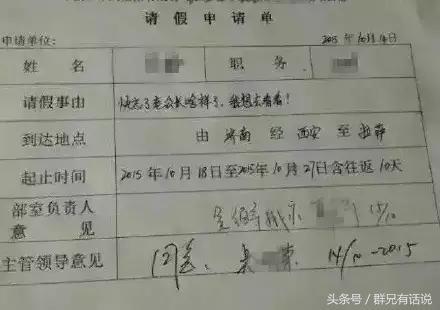 请假申请单
申请单位： 2015年10月14日
姓名 职务
请假事由 快忘了老公长啥样了，我想去看看！
到达地点 由济南经西安至拉萨
起止时间 2015年10月18日至2015年10月27日含往返10天
部室负责人意见 15/10
主管领导意见 同意、 14/10-2015
头条号 / 群兄有话说